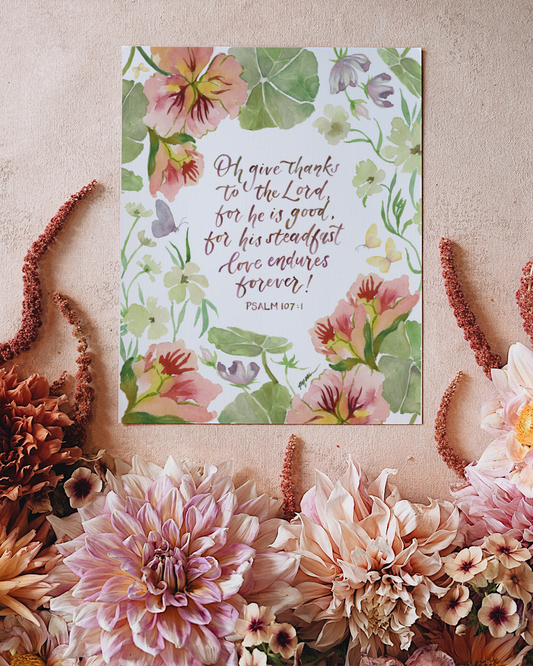 Oh give thanks
to the Lord
for he is good,
for his steadfast
love endures
forever!
PSALM 107:1